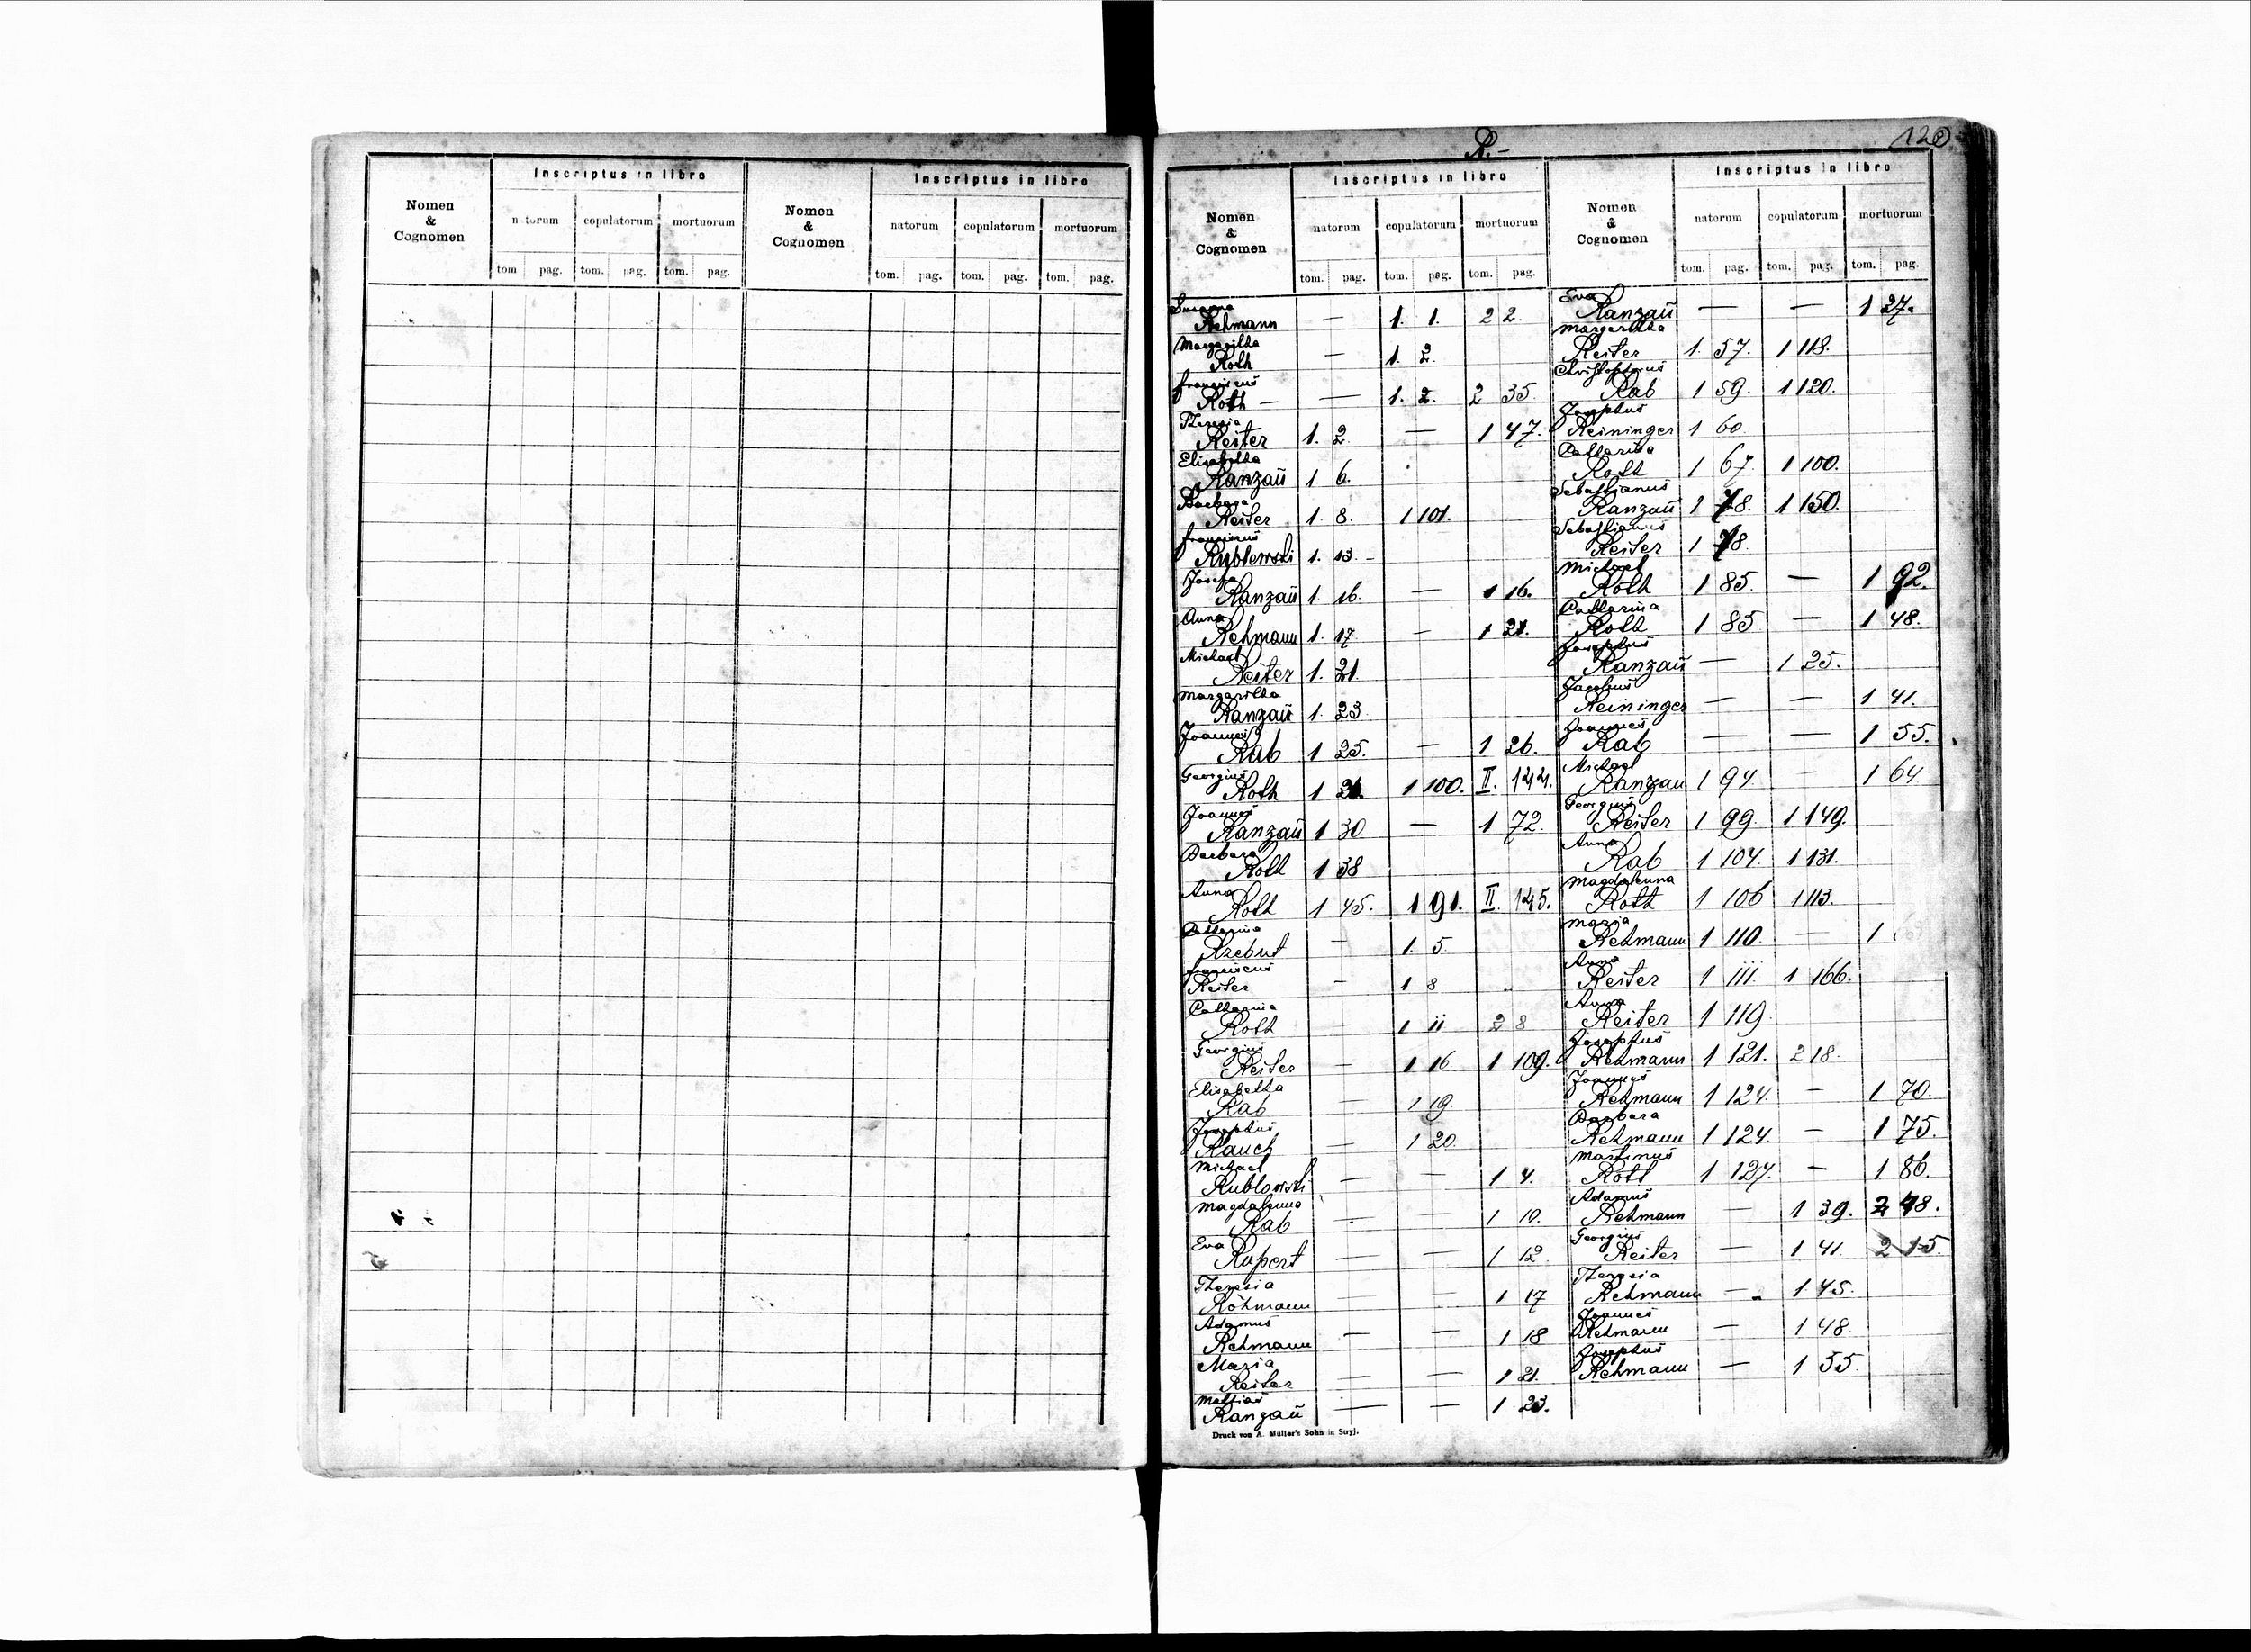 Nomen & Cognomen
Inscriptus in libro
natorum copulatorum mortuorum
tom pag. tom. pag. tom. pag.
Nomen & Cognomen
Inscriptus in libro
natorum copulatorum mortuorum
tom. pag. tom. pag. tom. pag.
R.-
120
Nomen & Cognomen
Inscriptus in libro
natorum copulatorum mortuorum
tom. pag. tom. pag. tom. pag.
Susanna
Rehmann — 1. 1. 2 2.
Margaritha
Roth — 1. 2.
Franciscus
Roth — — 1. 2. 2 35
Theresia
Reiter 1. 2. — 1 47.
Elisabetha
Ranzaŭ 1. 6.
Barbara
Reiter 1. 8. 1 101.
Franciscus
1. 13. -
Josefa
Ranzaŭ 1 16. — 1 16.
Anna
Rehmann 1. 17 - 1 21.
Michael
Reiter 1. 21.
Margaritha
Ranzaŭ 1. 23.
Joannes
Rab 1 25. — 1 26.
Georgius
Roth 1 1 100. II. 144.
Joannes
Ranzaŭ 1 30. — 1 72.
Barbara
Roth 1 38
Anna
Roth 1 45. 1 91. II. 145.
Catharina
Rzebut - 1. 5.
Franciscus
Reiter - 1 8
Catharina
Roth — 1 11 2 8
Georgius
Reiter — 1 16 1 109.
Elisabetha
Rab — 1 19.
Josephus
Rauch — 1 20.
Michael
Rublowski — — 1 4.
Magdalenna
Rab — — 1 10.
Eva
Rupert — — 1 12.
Theresia
Röhmann — — 1 17
Adamus
Rehmann — — 1 18
Maria
Reiter — — 1 21.
Mathias
Ranzaŭ — — 1 23.
Druck von A. Müller's Sohn in Stryj.
Nomen & Cognomen
Inscriptus in libro
natorum copulatorum mortuorum
tom. pag. tom. pag. tom. pag.
Eva
Ranzaŭ — — 1 27.
Margaritha
Reiter 1. 57. 1 118.
Christophorus
Rab 1 59. 1 120.
Josephus
Reininger 1 60.
Catharina
Roth 1 67. 1 100.
Sebastianus
Ranzaŭ 1 78. 1 150.
Sebastianus
Reiter 1 78.
Michael
Roth 1 85. — 1 92.
Catharina
Roth 1 85 — 1 48.
Josephus
Ranzaŭ — 1 25.
Jacobus
Reininger — — 1 41.
Joannes
Rab — — 1 55.
Michael
Ranzau 1 94. — 1 64
Georgius
Reiter 1 99. 1 149.
Anna
Rab 1 104. 1 131.
Magdalenna
Roth 1 106 1 113.
Maria
Rehmann 1 110. — 1
Anna
Reiter 1 111. 1 166.
Anna
Reiter 1 119.
Josephus
Rehmann 1 121. 2 18.
Joannes
Rehmann 1 124. — 1 70.
Barbara
Rehmann 1 124. — 1 75.
Martinus
Roth 1 127. — 1 86.
Adamus
Rehmann — 1 39. 2 48.
Georgius
Reiter — 1 41. 2 15.
Theresia
Rehmann — 1 45.
Joannes
Rehmann — 1 48.
Josephus
Rehmann — 1 55.